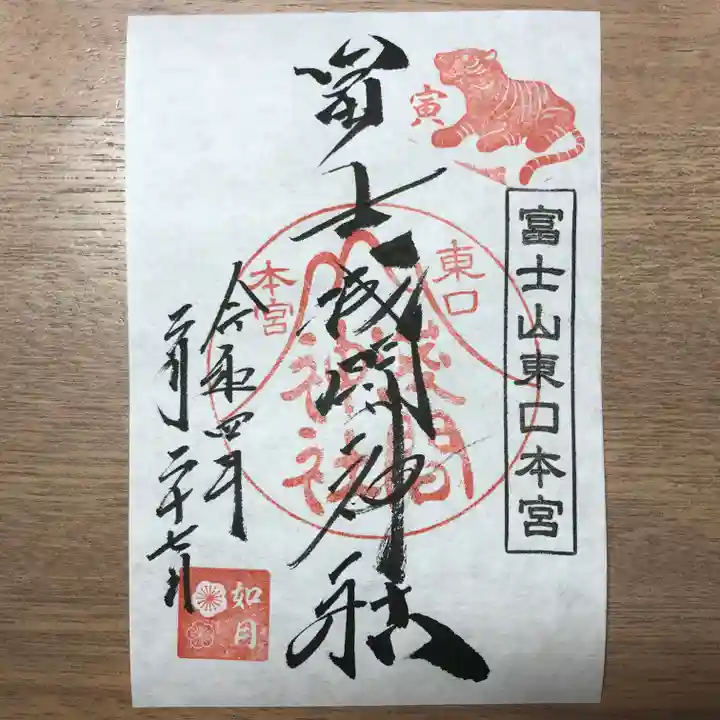 寅
富士山東口本宮
冨士浅間神社
東口
本宮
浅間
神社
令和四年
二月二十七日
如月